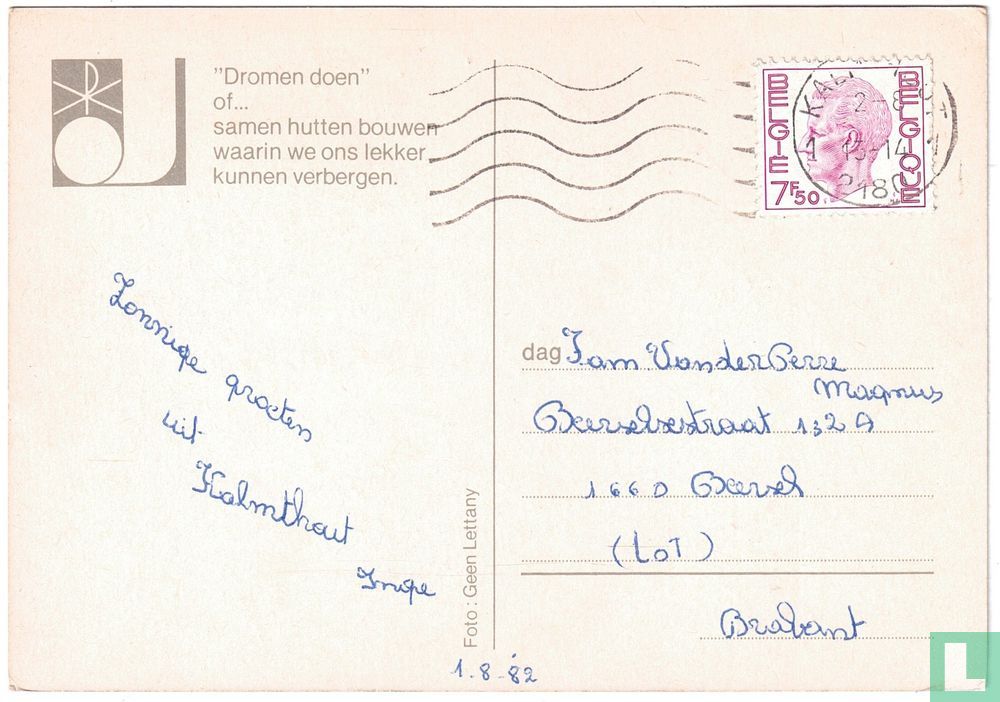 "Dromen doen"
of...
samen hutten bouwen
waarin we ons lekker
kunnen verbergen.
BELGIE
BELGIQUE
7F50
2-8
13-14
2180
Zonnige groeten
uit
Kalmthout
Inge
Foto: Geen Lettany
1.8.82
dag Fam VanderPerre
Magnus
Beerselsestraat 132 A
1660 Beersel
(LOT)
Brabant
L